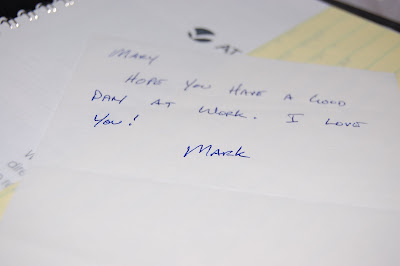 AT
Mary
Hope you have a good
day at work. I love
you!
Mark